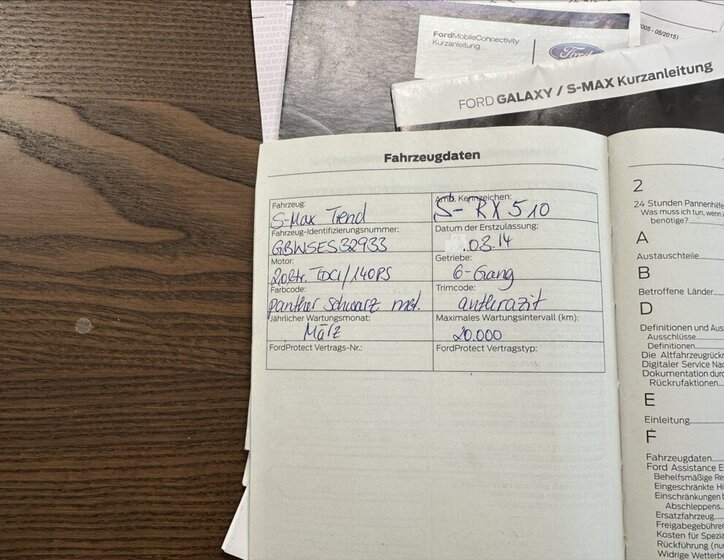 005 - 05/2015)
FordMobileConnectivity
Kurzanleitung
Ford
FORD GALAXY / S-MAX Kurzanleitung
Fahrzeugdaten
Fahrzeug:
S-Max Trend
Amtl. Kennzeichen:
S- RX 510
Fahrzeug-Identifizierungsnummer:
GBWSES32933
Datum der Erstzulassung:
.03.14
Motor:
2,0ltr. TDCi/140PS
Getriebe:
6-Gang
Farbcode:
panther schwarz met.
Trimcode:
anthrazit
Jährlicher Wartungsmonat:
März
Maximales Wartungsintervall (km):
20.000
FordProtect Vertrags-Nr.:
FordProtect Vertragstyp:
2
24 Stunden Pannenhilfe
Was muss ich tun, wenn
benötige?
A
Austauschteile
B
Betroffene Länder
D
Definitionen und Aus
Ausschlüsse
Definitionen
Die Altfahrzeugrück
Digitaler Service Nac
Dokumentation durc
Rückrufaktionen
E
Einleitung
F
Fahrzeugdaten
Ford Assistance E
Behelfsmäßige Re
Eingeschränkte Hi
Einschränkungen b
Abschleppens
Ersatzfahrzeug
Freigabegebühre
Kosten für Spezi
Rückführung (nu
Widrige Wetterbe